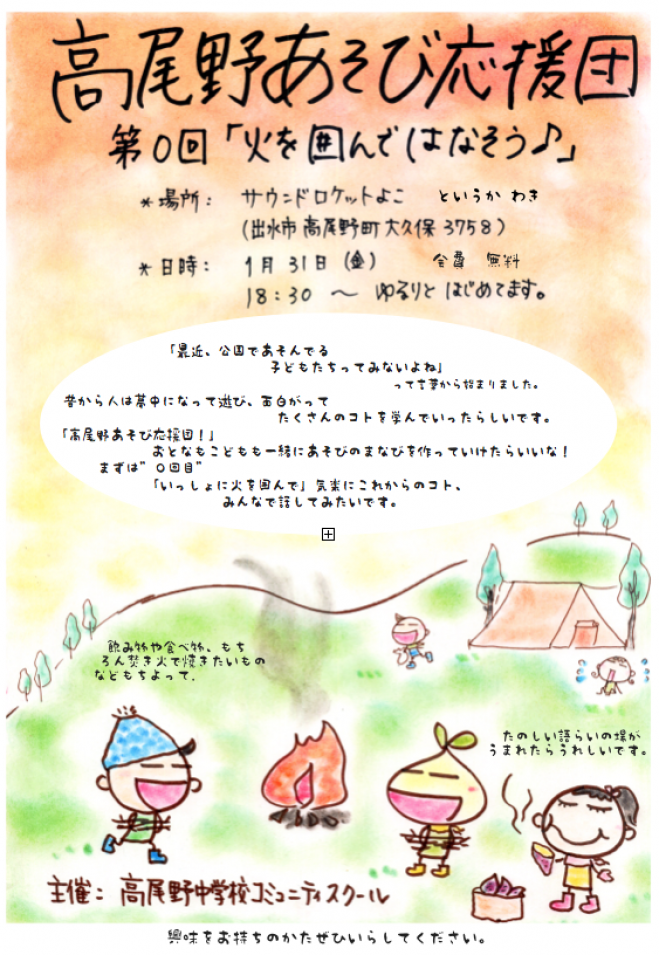 高尾野あそび応援団
第0回「火を囲んではなそう♪」
*場所： サウンドロケットよこ というか わき
(出水市高尾野町大久保3758)
*日時： 1月31日(金) 会費 無料
18:30 〜 ゆるりと はじめてます。
「最近、公園であそんでる
子どもたちってみないよね」
って言葉から始まりました。
昔から人は夢中になって遊び、面白がって
たくさんのコトを学んでいったらしいです。
「高尾野あそび応援団！」
おとなもこどもも一緒にあそびのまなびを作っていけたらいいな！
まずは”０回目”
「いっしょに火を囲んで」気楽にこれからのコト、
みんなで話してみたいです。
飲み物や食べ物、もち
ろん焚き火で焼きたいもの
などもちよって.
たのしい語らいの場が
うまれたらうれしいです。
主催： 高尾野中学校コミュニティスクール
興味をお持ちのかたぜひいらしてください。